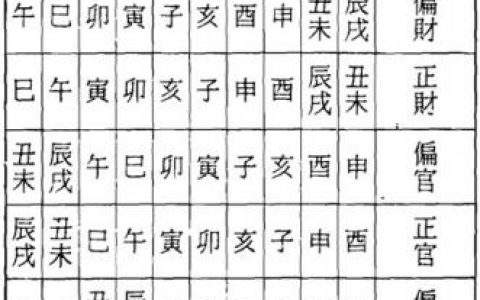 偏財 辰戌 丑未 申 酉 亥 子 寅 卯 巳 午
正財 丑未 辰戌 酉 申 子 亥 卯 寅 午 巳
偏官 申 酉 亥 子 寅 卯 巳 午 辰戌 丑未
正官 酉 申 子 亥 卯 寅 午 巳 丑未 辰戌
偏 辰 丑